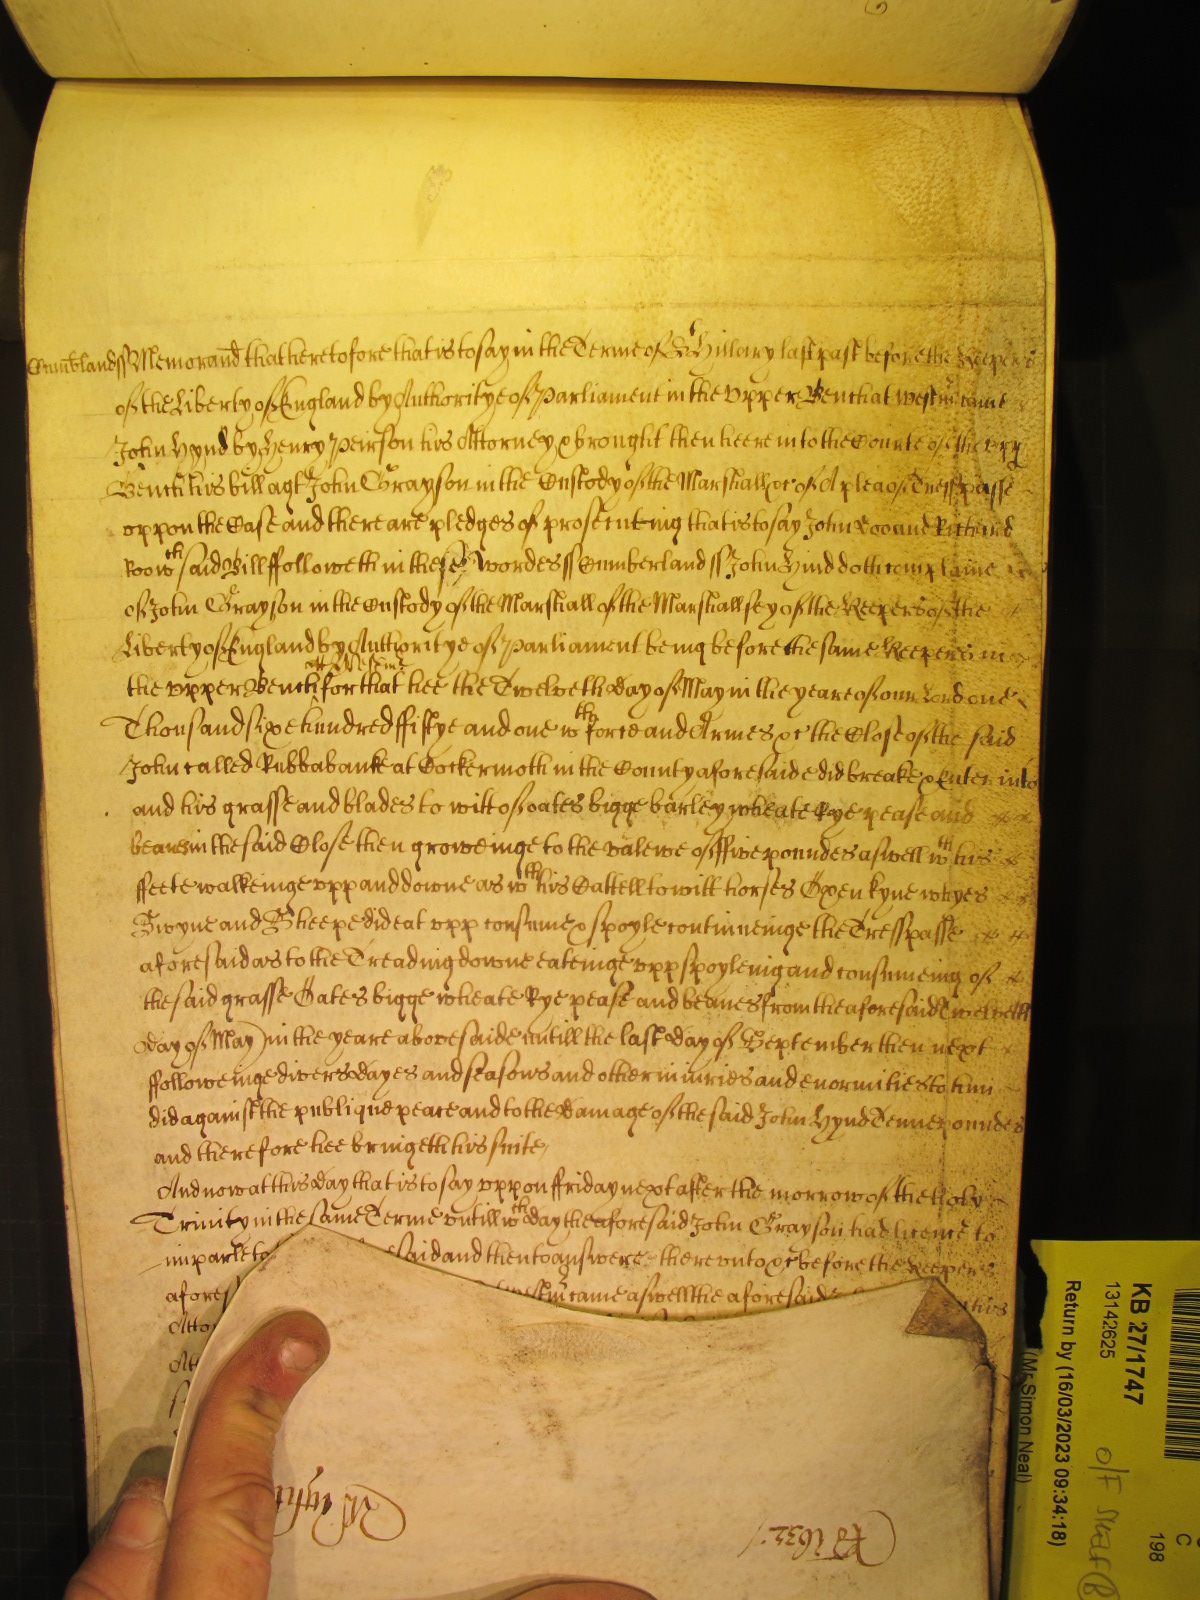 Cumbland ss Memorand that heretofore that is to say in the Terme of St Hillary last past before the Keepers
of the Liberty of England by Authoritye of Parliament in the Upper Bench at Westm came
John Hynd by Henry Peirson his Attorney & brought then heere into the Courte of the Upp
Bench his bill agt John Grayson in the Custody of the Marshall &c of A plea of Tresspasse
uppon the Case and there are pledges of prosecuting that is to say John Doo and Richard
Roo wch said Bill followeth in these wordes ss Cumberland ss John Hind doth complaine
of John Grayson in the Custody of the Marshall of the Marshallsey of the Keepers of the
Liberty of England by Authoritye of Parliament being before the same Keepers in
att Westmr
the Upper Bench for that hee the Twelveth day of May in the yeare of our Lord one
Thousand sixe hundred fiftye and one wth force and Armes &c the Close of the said
John called Rubbabanke at Cockermoth in the County aforesaide did breake & Enter into
and his grasse and blades to witt of oates bigge barley wheate Rye pease and
beanes in the said Close then groweinge to the valewe of five poundes aswell wth his
feete walkeinge upp and downe as wth his Cattell to witt horses Oxen kyne whyes
Swyne and Sheepe did eat upp consume & spoyle contineuinge the Tresspasse
aforesaid as to the Treading downe eateinge upp spoyleing and consumeing of
the said grasse Oates bigge wheate Rye pease and beanes from the aforesaid Twelveth
day of May in the yeare abovesaide untill the last day of September then next
followeinge divers dayes and seasons and other iniuries and enormities to him
did against the publique peace and to the damage of the said John Hynd Tenne poundes
and therefore hee bringeth his suite
And now at this day that is to say uppon ffriday next after the morrow of the holy
Trinity in the same Terme untill wch day the aforesaid John Grayson had licence to
imparle to said and then to answere thereunto &c before the Keepers
afores Westm came aswell the aforesaid his
Atto
Att
KB 27/1747
13142625
Return by (16/03/2023 09:34:18)
(Mr Simon Neal)
198
C
o/f